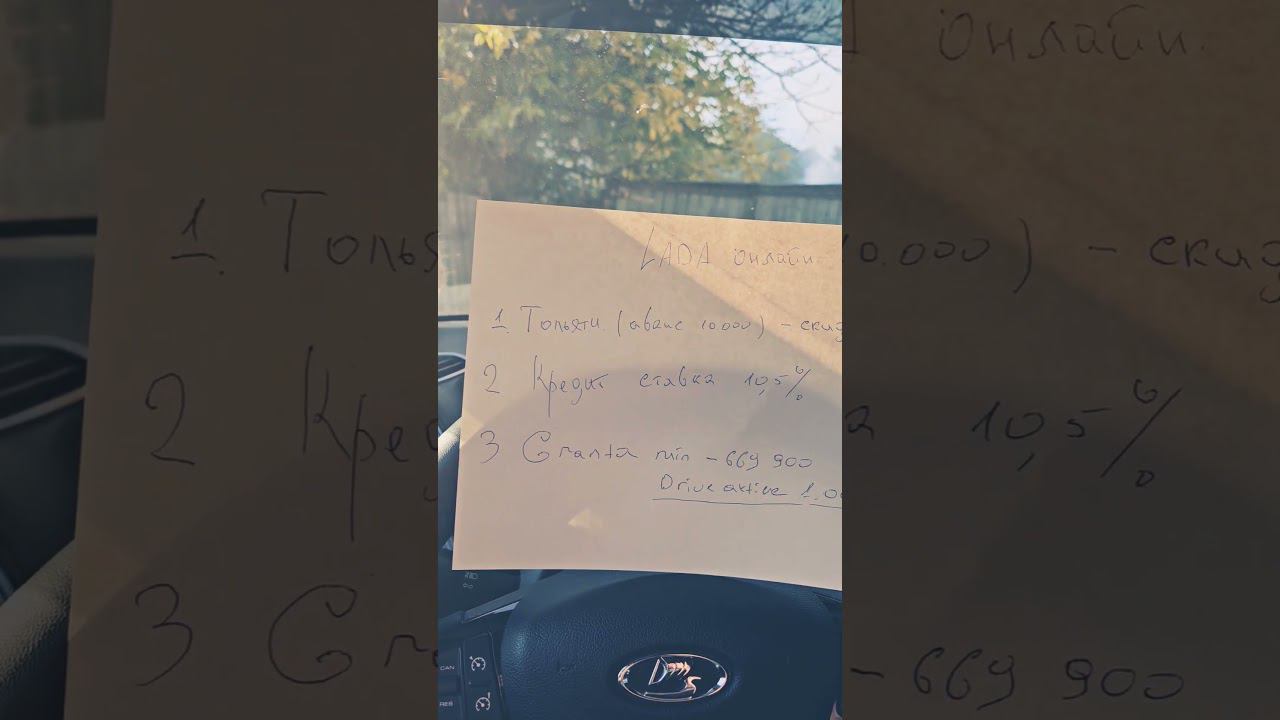 LADA онлайн.
1. Тольяти. (аванс 10.000) – скид
2 Кредит ставка 10,5%
3 Granta min – 669 900
Drive aktive 1.00
CAN
RES